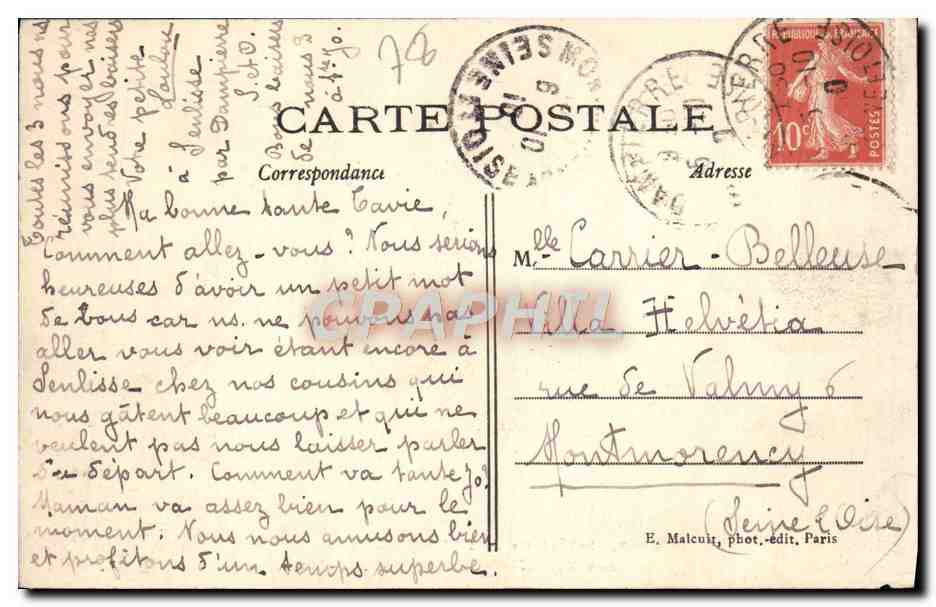 728
CARTE POSTALE
Correspondance
Adresse
RÉPUBLIQUE FRANÇAISE
10c
POSTES
DAMPIERRE
Ma bonne tante Tavie,
Comment allez-vous? Nous serions
heureuses d'avoir un petit mot
de vous car ns. ne pouvons pas
aller vous voir étant encore à
Senlisse chez nos cousins qui
nous gâtent beaucoup et qui ne
veulent pas nous laisser parler
de départ. Comment va tante Jo?
Maman va assez bien pour le
moment. Nous nous amusons bien
et profitons d'un temps superbe.
Toutes les 3 nous ns
réunissons pour
vous envoyer nos
plus tendres baisers
Votre petite
Loulou
à Senlisse
par Dampierre
S. et O.
Bons baisers
de nous 3
à tte Jo.
Mlle Carrier-Belleuse
Villa Helvétia
rue de Valmy 6
Montmorency
(Seine & Oise)
E. Malcuit, phot.-édit. Paris
CPAPHIL